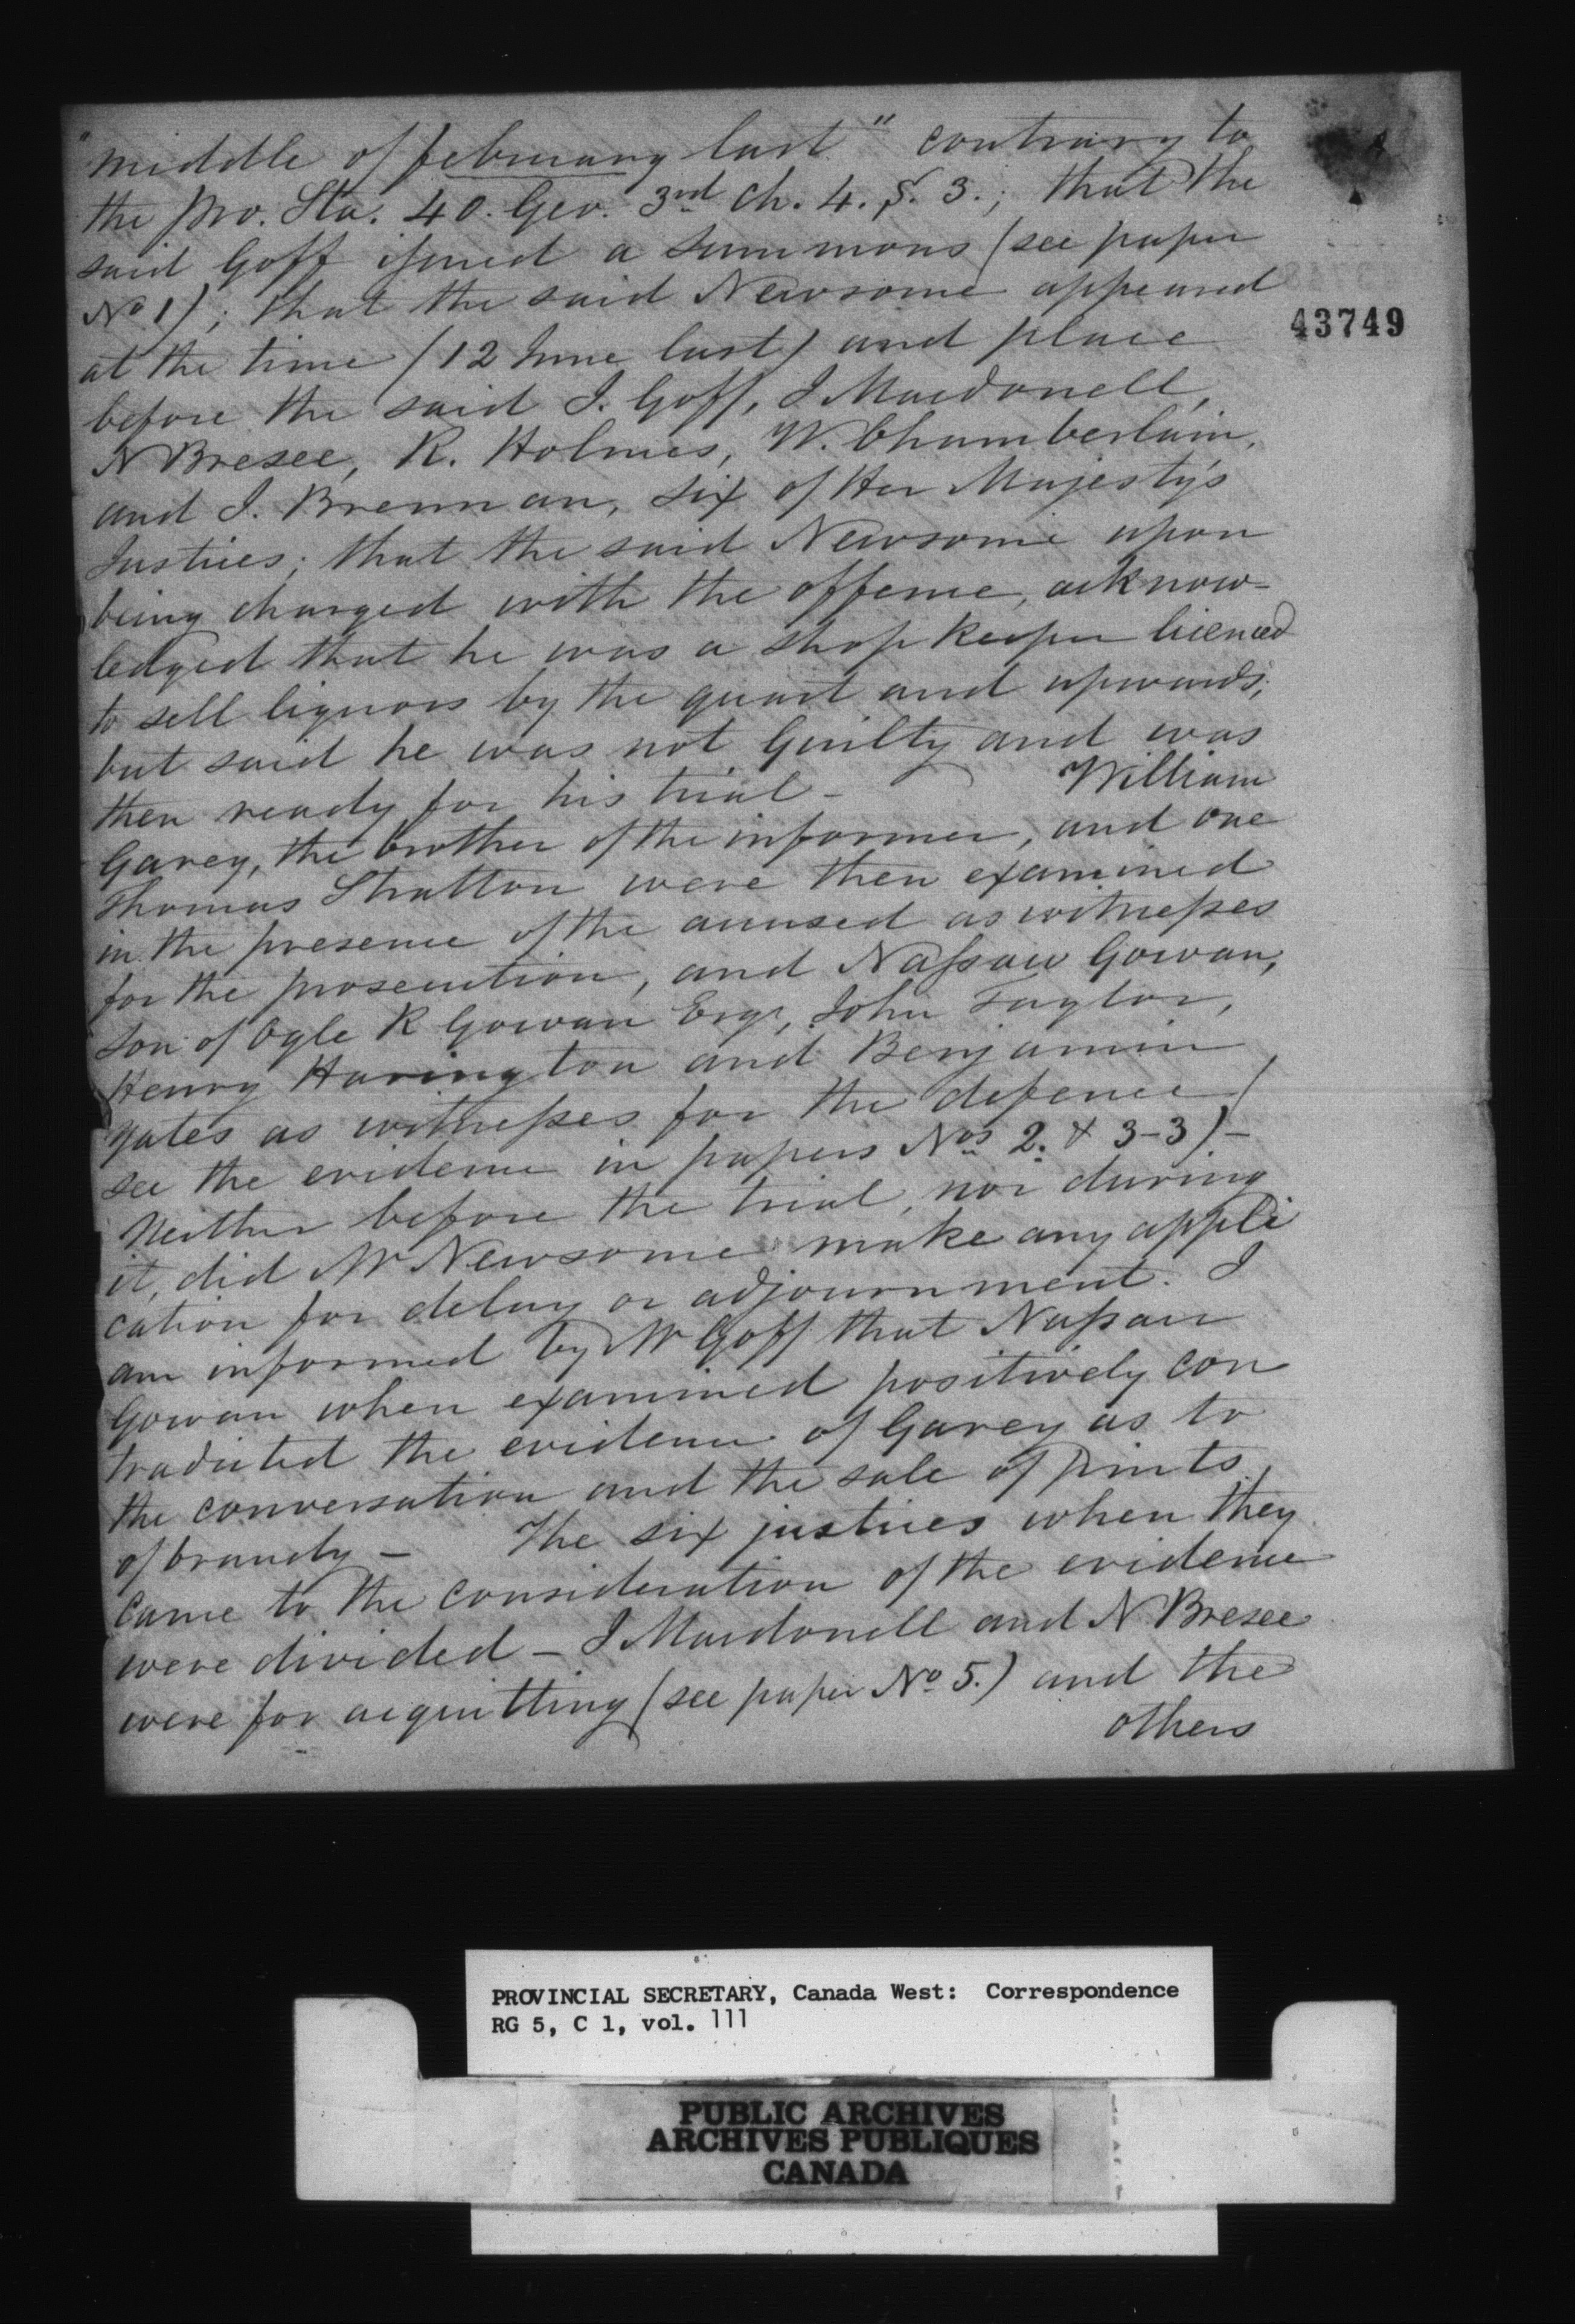 "middle of february last" contrary to
the Pro. Sta. 40. Geo. 3rd ch. 4. §. 3.; that the
said Goff issued a summons (see paper
No 1); that the said Newsome appeared
at the time (12 June last) and place
before the said J. Goff, J Macdonell,
N Bresee, R. Holmes, W. Chamberlain,
and J. Brennan, six of Her Majesty's
Justices; that the said Newsome upon
being charged with the offence, acknow-
ledged that he was a shop keeper licenced
to sell liquors by the quart and upwards;
but said he was not Guilty and was
then ready for his trial - William
Garey, the brother of the informer, and one
Thomas Stratton were then examined
in the presence of the accused as witnesses
for the prosecution, and Nassau Gowan,
son of Ogle R Gowan Esqr, John Taylor,
Henry Harington and Benjamin
Yates as witnesses for the defence (
see the evidence in papers Nos 2. & 3-3) -
Neither before the trial, nor during
it, did Mr Newsome make any appli
cation for delay or adjournment. I
am informed by Mr Goff that Nassau
Gowan when examined positively con
tradicted the evidence of Garey as to
the conversation and the sale of pints
of brandy - The six justices when they
came to the consideration of the evidence
were divided - J Macdonell and N Bresee
were for acquitting (see paper No 5.) and the
others
43749
PROVINCIAL SECRETARY, Canada West: Correspondence
RG 5, C 1, vol. 111
PUBLIC ARCHIVES
ARCHIVES PUBLIQUES
CANADA